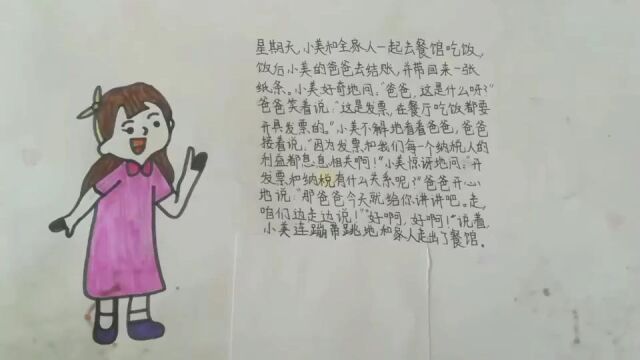 星期天,小美和全家人一起去餐馆吃饭,
饭后小美的爸爸去结账,并带回来一张
纸条。小美好奇地问:“爸爸,这是什么呀?”
爸爸笑着说:“这是发票,在餐厅吃饭都要
开具发票的。”小美不解地看着爸爸,爸爸
接着说:“因为发票和我们每一个纳税人的
利益都息息相关啊!”小美惊讶地问:“开
发票和纳税有什么关系呢?”爸爸开心
地说:“那爸爸今天就给你讲讲吧。走,
咱们边走边说!”“好啊,好啊!”说着,
小美连蹦带跳地和家人走出了餐馆。